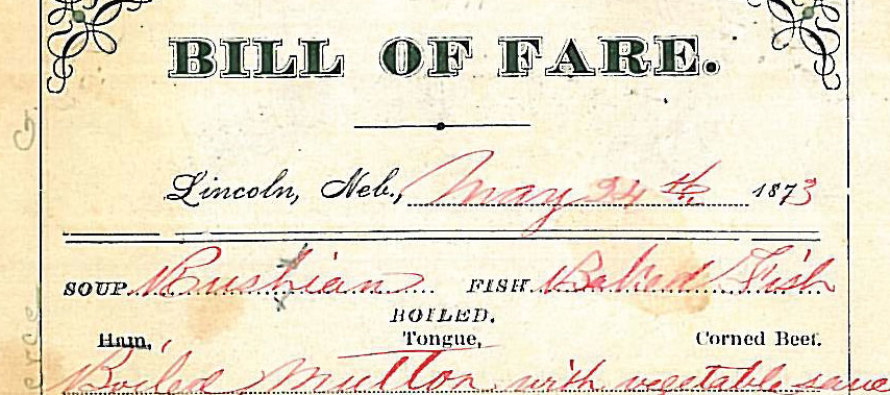 BILL OF FARE.
Lincoln, Neb., May 24th 1873
SOUP Rushian FISH Baked Fish
BOILED.
Ham, Tongue, Corned Beef.
Boiled Mutton with vegetable sauce